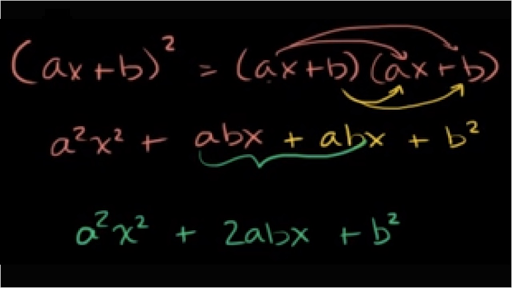 (ax+b)² = (ax+b)(ax+b)
a²x² + abx + abx + b²
a²x² + 2abx + b²